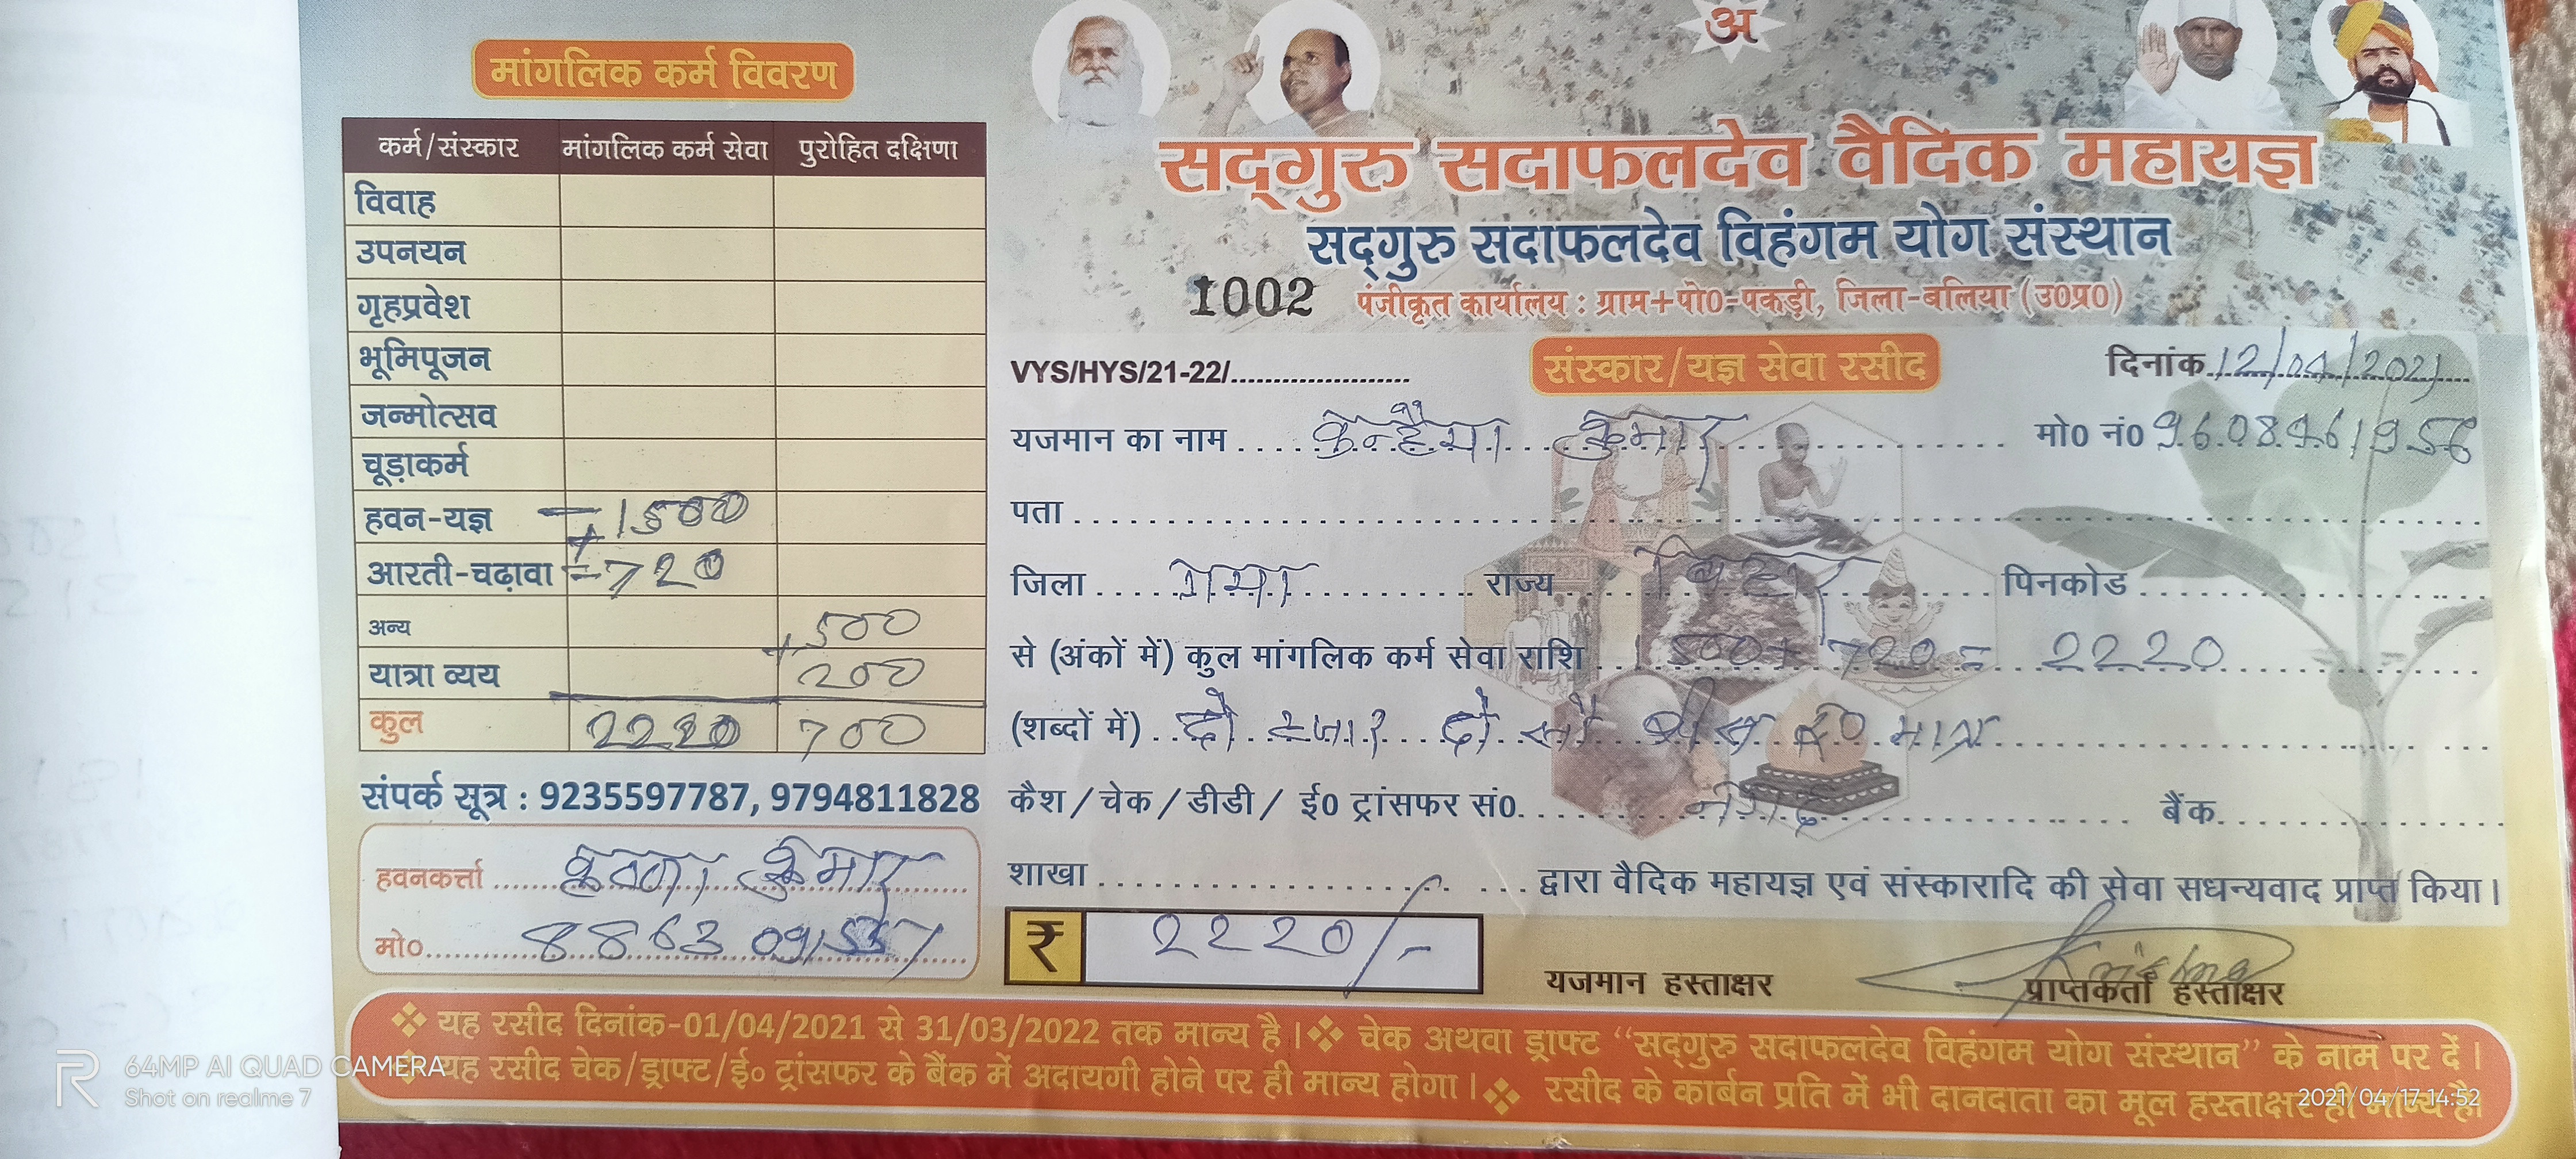 मांगलिक कर्म विवरण
कर्म/संस्कार मांगलिक कर्म सेवा पुरोहित दक्षिणा
विवाह
उपनयन
गृहप्रवेश
भूमिपूजन
जन्मोत्सव
चूड़ाकर्म
हवन-यज्ञ = 1500
आरती-चढ़ावा + = 720
अन्य 500
यात्रा व्यय + 200
कुल 2220 700
संपर्क सूत्र : 9235597787, 9794811828
हवनकर्त्ता कृष्णा कुमार
मो० 8863091537
अ
सद्‌गुरु सदाफलदेव वैदिक महायज्ञ
सद्‌गुरु सदाफलदेव विहंगम योग संस्थान
1002 पंजीकृत कार्यालय : ग्राम+पो०-पकड़ी, जिला-बलिया (उ०प्र०)
VYS/HYS/21-22/ संस्कार/यज्ञ सेवा रसीद दिनांक 12/04/2021
यजमान का नाम कन्हैया कुमार मो० नं० 9608461956
पता
जिला गया राज्य बिहार पिनकोड
से (अंकों में) कुल मांगलिक कर्म सेवा राशि 1500+720= 2220
(शब्दों में) दो हजार दो सौ बीस रु० मात्र
कैश/चेक/डीडी/ ई० ट्रांसफर सं०. नगद बैंक
शाखा द्वारा वैदिक महायज्ञ एवं संस्कारादि की सेवा सधन्यवाद प्राप्त किया।
₹ 2220/-
यजमान हस्ताक्षर Krishna प्राप्तकर्ता हस्ताक्षर
❖ यह रसीद दिनांक-01/04/2021 से 31/03/2022 तक मान्य है। ❖ चेक अथवा ड्राफ्ट "सद्‌गुरु सदाफलदेव विहंगम योग संस्थान" के नाम पर दें।
❖ यह रसीद चेक/ड्राफ्ट/ई० ट्रांसफर के बैंक में अदायगी होने पर ही मान्य होगा। ❖ रसीद के कार्बन प्रति में भी दानदाता का मूल हस्ताक्षर ही मान्य है।
64MP AI QUAD CAMERA
Shot on realme 7
2021/04/17 14:52